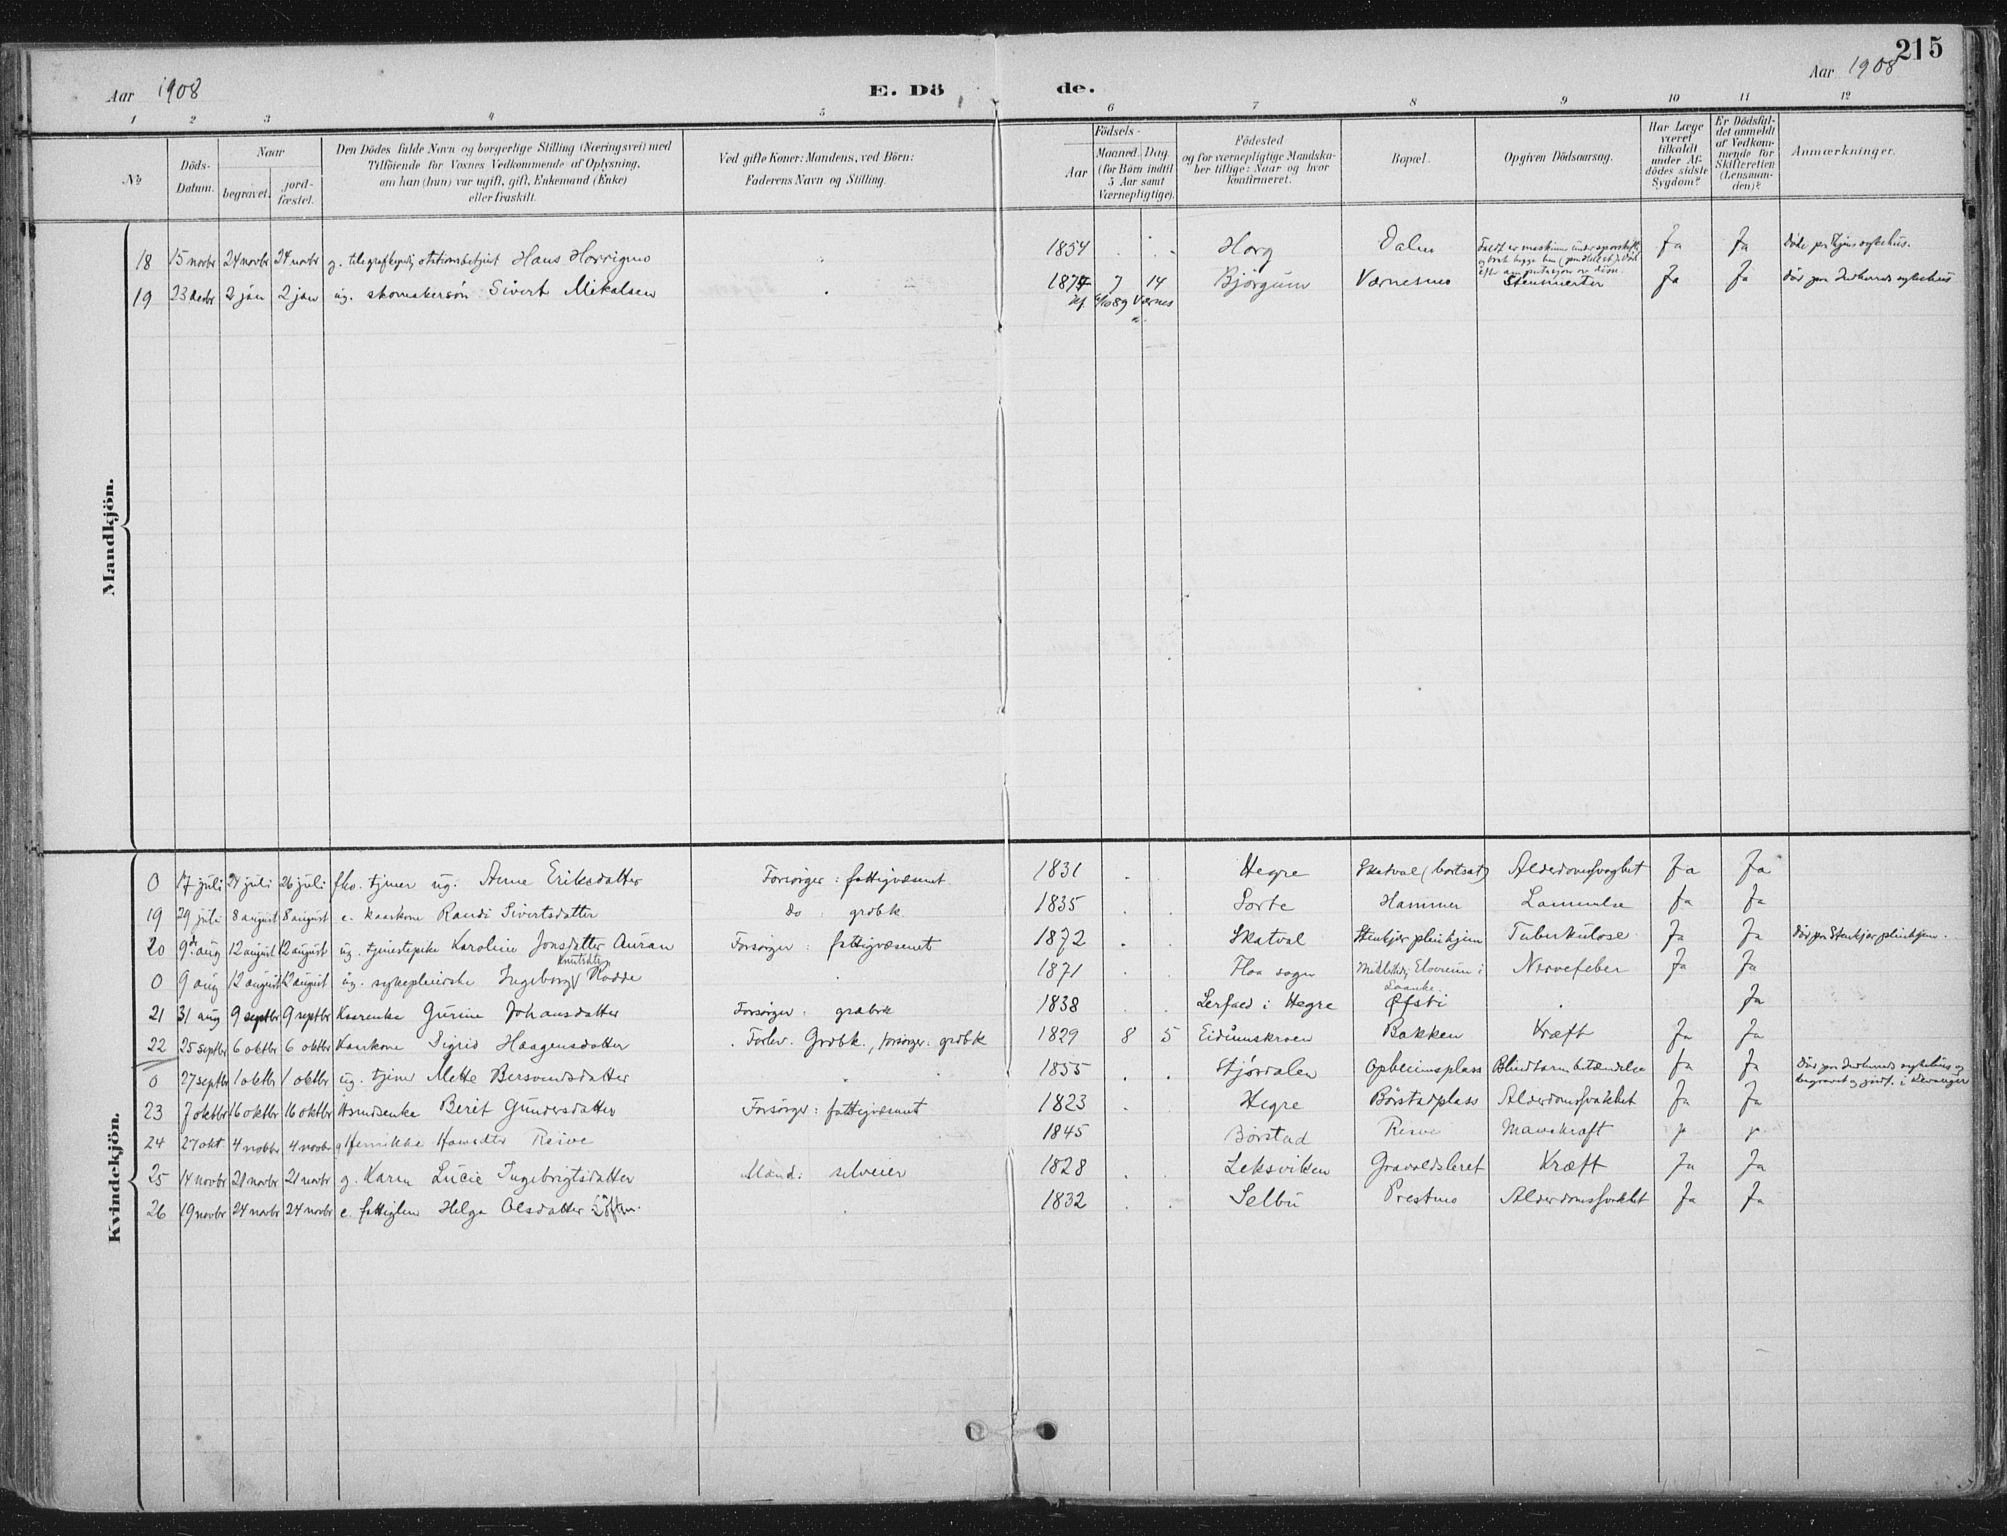 215
Aar 1908
E. Dö de.
Aar 1908
1 2 3 4 5 6 7 8 9 10 11 12
No
Döds-Datum.
Naar
begravet.
jord-fæstet.
Den Dödes fulde Navn og borgerlige Stilling (Næringsvei) med
Tilföiende for Voxnes Vedkommende af Oplysning,
om han (hun) var ugift, gift, Enkemand (Enke)
eller fraskilt.
Ved gifte Koner: Mandens, ved Börn:
Faderens Navn og Stilling.
Födsels-
Aar
Maaned. Dag.
(for Börn indtil
5 Aar samt
Værnepligtige).
Födested
og for værnepligtige Mandska-
ber tillige: Naar og hvor
konfirmeret.
Bopæl.
Opgiven Dödsaarsag.
Har Læge
været
tilkaldt
under Af-
dödes sidste
Sygdom?
Er Dödsfal-
det anmeldt
af Vedkom-
mende for
Skifteretten
(Lensman-
den)?
Anmærkninger.
Mandkjön.
18 15 novbr 24 novbr 24 novbr g. telegrafkyndig stationsbetjent Hans Horrigmo 1854 Horg Dalen Ja Ja
19 23 decbr 2 jan 2 jan ug. skomakersön Sivert Mikalsen 1874 7 14 Bjørgum Værnesmo Ja Ja Död paa Indherreds sykehus
Kf. 6/10 89 Værnes
Kvindekjön.
0 17 juli 24 juli 26 juli fhv. tjener ug. Anne Eriksdatter Forsörger: fattigvæsenet 1831 Hegre Skatval (bortsat) Alderdomssvaghet Ja Ja
19 29 juli 8 august 8 august e. kaarkone Randi Sivertsdatter Do : grdbk 1835 Sorte Hammer Lammelse Ja Ja
20 9de aug 12 august 12 august ug. tjenestepike Karoline Jonsdatter Auran Forsörger: fattigvæsenet 1872 Skatval Stenkjer pleiehjem Tuberkulose Ja Ja Död paa Stenkjer pleiehjem.
0 9 aug 12 august 12 august ug. sykepleierske Ingeborg Knutsdatter Hodde 1871 Flaa sogn Nervefeber Ja Ja
21 31 aug 9 septbr 9 septbr Kaarenke Gurine Johansdatter Forsörger: grdbrk 1838 Lerfald i Hegre Øfsti Ja
22 25 septbr 6 oktbr 6 oktbr Kaarkone Sigrid Haagensdatter Forlev. Grdbk., forsörger: grdbk 1829 8 5 Eidumskroen Bakken Kræft Ja Ja
0 27 septbr 1 oktbr 1 oktbr ug. tjener Mette Bersvendsdatter 1855 Stjørdalen Opheimsplass Blindtarmbetændelse Ja Ja Död paa Indherreds sykehus og
begravet og jordf. i Levanger
23 7 oktbr 16 oktbr 16 oktbr Husmdsenke Berit Gundersdatter Forsörger: fattigvæsenet 1823 Hegre Børstadplass Alderdomssvakhet Ja Ja
24 27 okt 4 novbr 4 novbr g Henrikke Resve 1845 Børstad Resve Mavekræft
25 14 novbr 21 novbr 21 novbr g. Karen Lucie Ingebrigtsdatter Mand: selveier 1828 Leksviken Gravaldsleret Kræft Ja Ja
26 19 novbr 24 novbr 24 novbr e. fattiglem Helga Olsdatter 1832 Selbu Prestmo Alderdomssvakhet Ja Ja